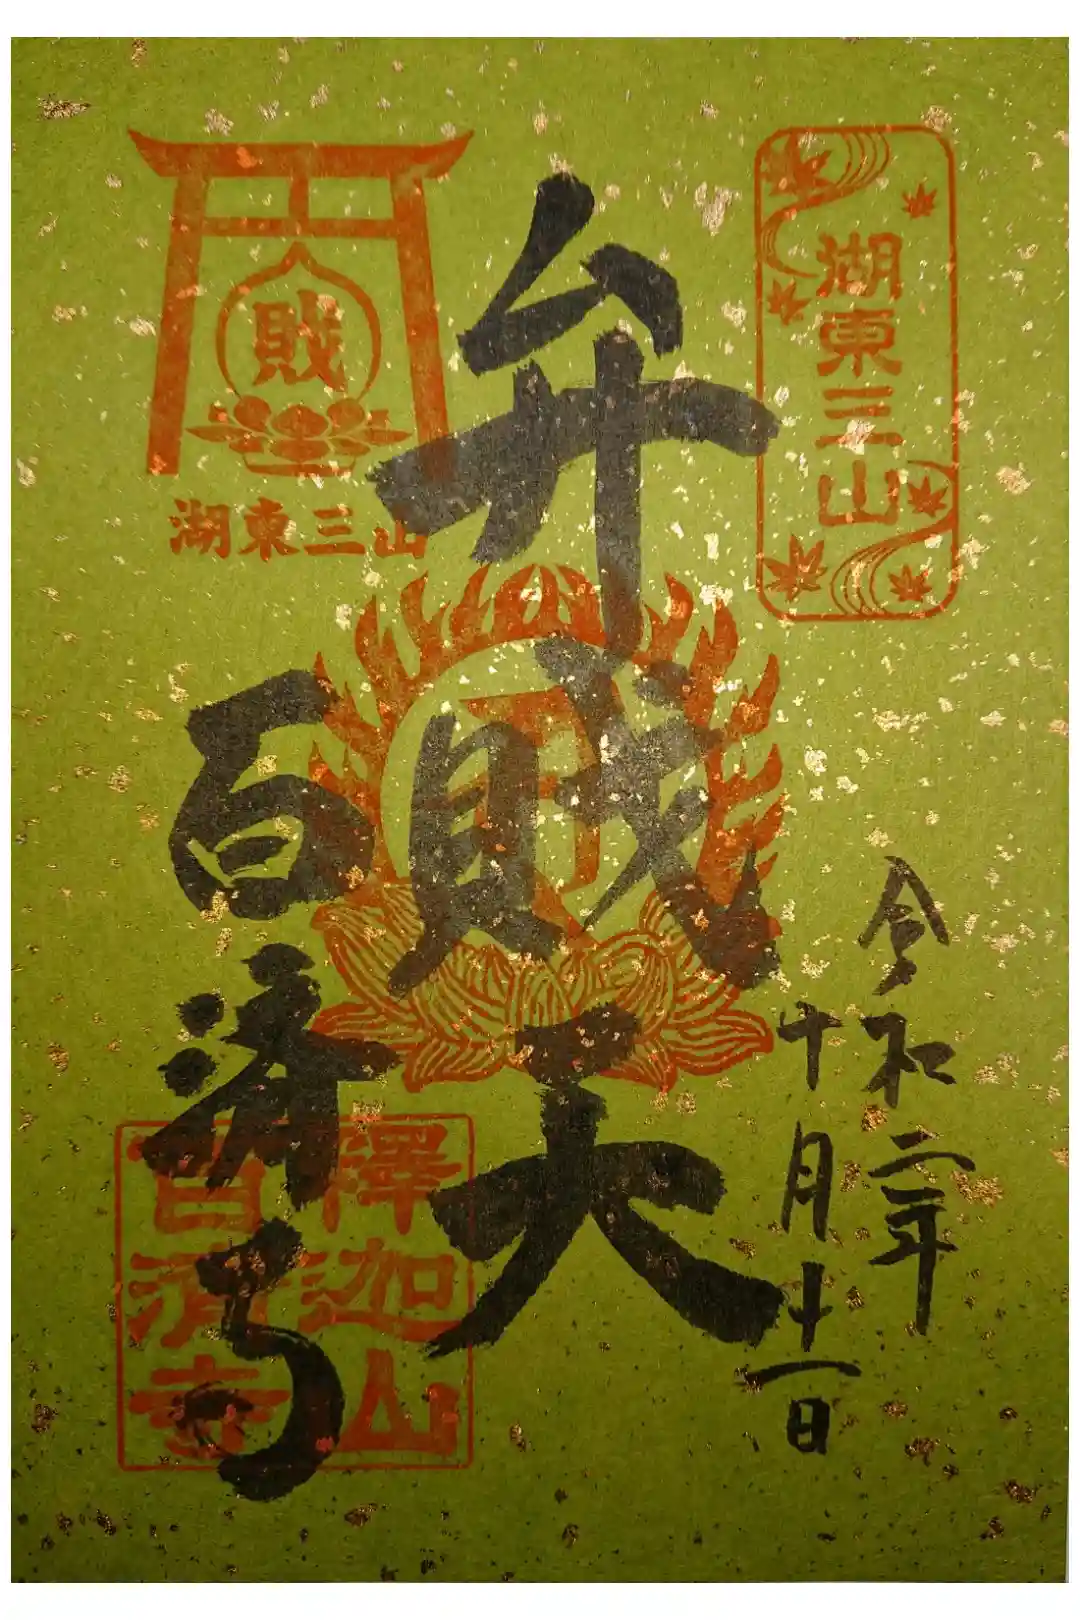 湖東三山
令和二年
十月十一日
弁戝天
戝
湖東三山
百済寺
釋迦山
百濟寺